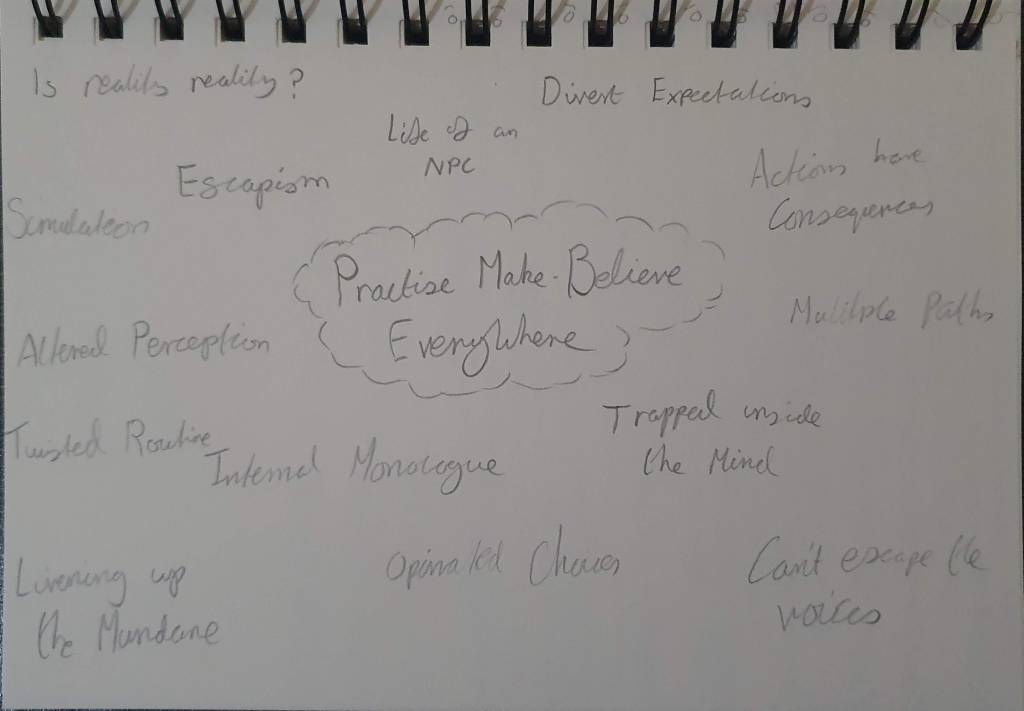 Is reality reality?
Divert Expectations
Life of an
NPC
Escapism
Actions have
Consequences
Simulation
Practise Make-Believe
Everywhere
Multiple Paths
Altered Perception
Trapped inside
the Mind
Twisted Routine
Internal Monologue
Livening up
the Mundane
Opinated Choices
Can't escape the
voices